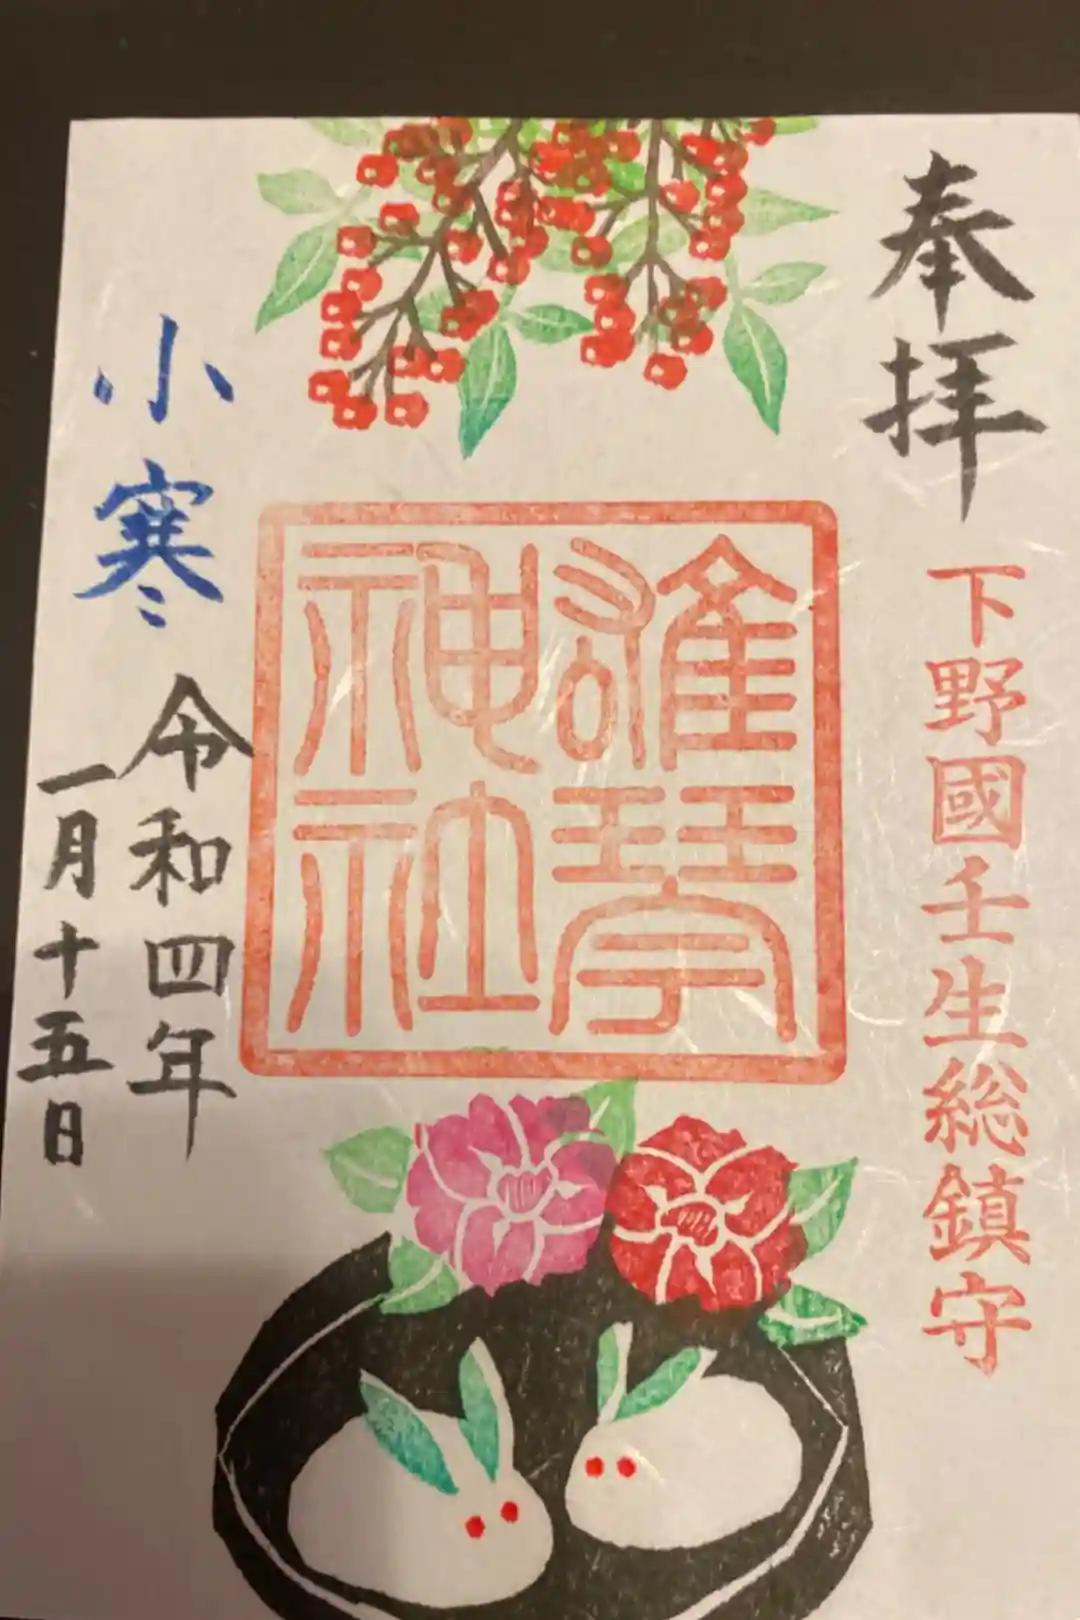 奉拝
下野國壬生総鎮守
雄琴神社
小寒
令和四年
一月十五日